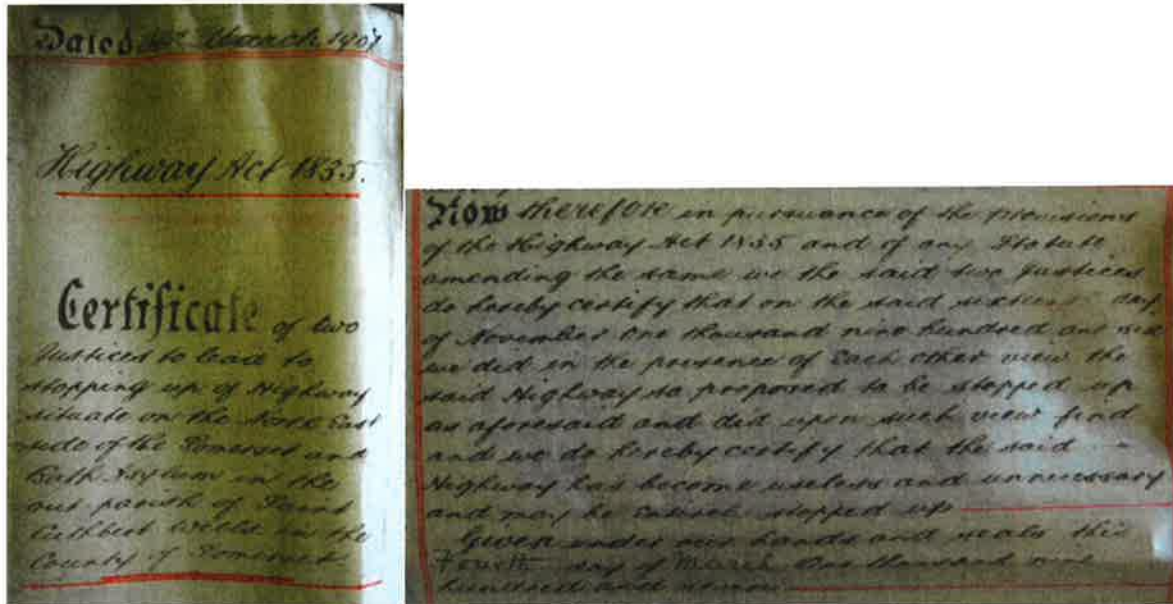 Dated March 1907
Highway Act 1835.
Certificate of two
Justices to lead to
stopping up of Highway
situate on the East
side of the Somerset and
Bath Asylum in the
out parish of Saint
Cuthbert Wells in the
County of Somerset
Now therefore in pursuance of the provisions
of the Highway Act 1835 and of any Statute
amending the same we the said two Justices
do hereby certify that on the said day
of November One thousand nine hundred and
we did in the presence of each other view the
said Highway so proposed to be stopped up
as aforesaid and did upon such view find
and we do hereby certify that the said
Highway has become useless and unnecessary
and may be stopped up
Given under our hands and seals this
Fourth day of March One thousand nine
hundred and seven